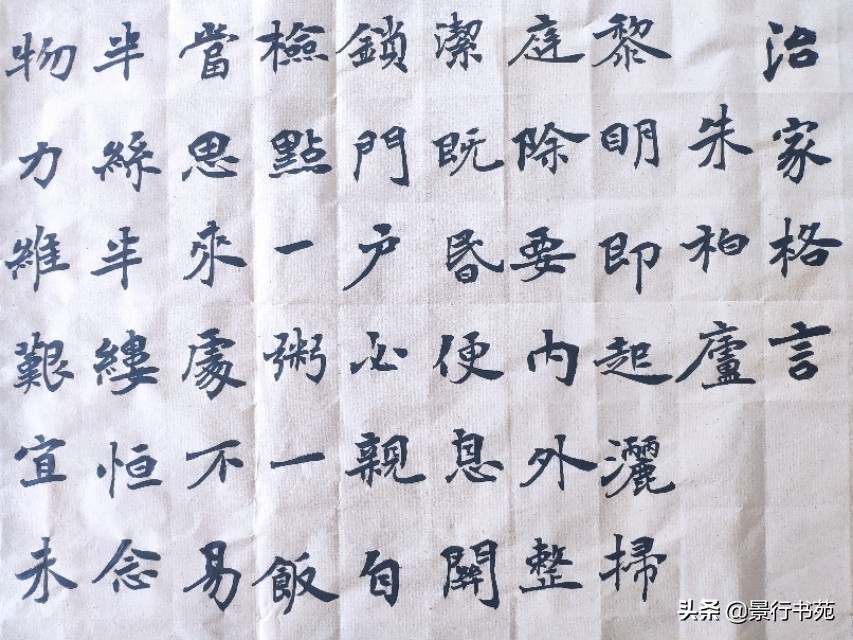 治家格言
朱柏廬
黎明即起灑掃
庭除要内外整
潔既昏便息關
鎖門户必親自
檢點一粥一飯
當思來處不易
半絲半縷恒念
物力維艱宜未
头条 @景行书苑